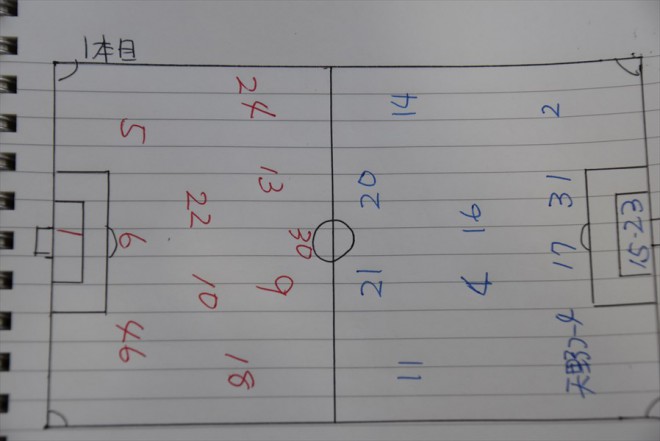 1本目
24
5
13
22
30
1
6
9
10
46
18
14
2
20
31
16
15-23
17
21
4
11
天野コーチ